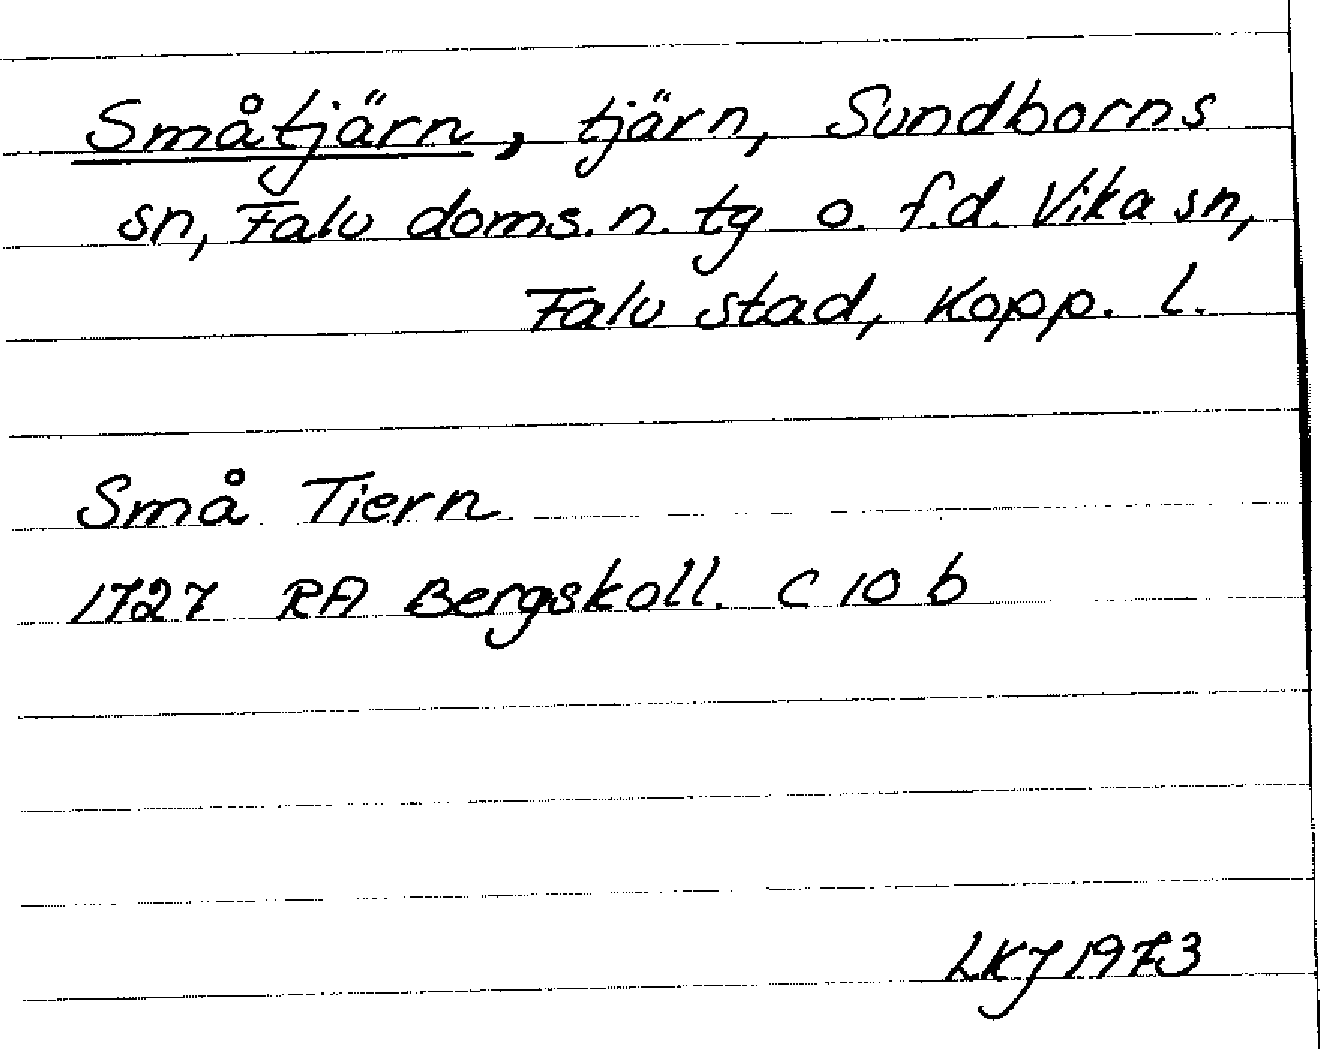 Småtjärn, tjärn, Sundborns
sn, Falu doms. n. tg o. f.d. Vika sn,
Falu stad, Kopp. l.
Små Tiern
1727 RA Bergskoll. C 10 b
LKJ 1973